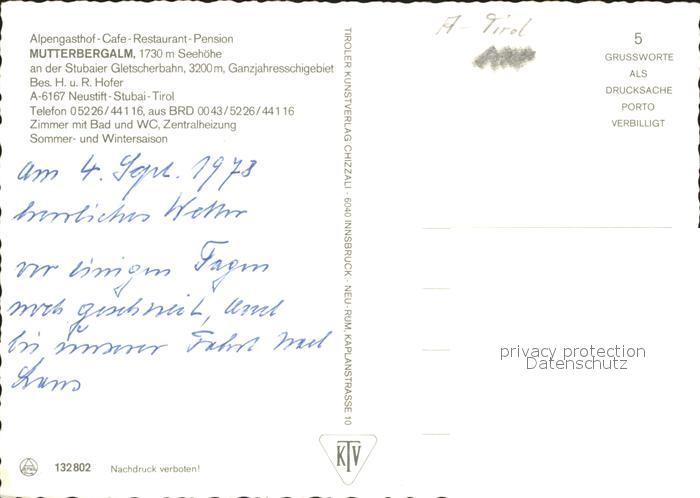 Alpengasthof - Cafe - Restaurant - Pension
MUTTERBERGALM, 1730 m Seehöhe
an der Stubaier Gletscherbahn, 3200 m, Ganzjahresschigebiet
Bes. H. u. R. Hofer
A-6167 Neustift - Stubai - Tirol
Telefon 0 52 26 / 44 1 16, aus BRD 00 43 / 52 26 / 44 1 16
Zimmer mit Bad und WC, Zentralheizung
Sommer- und Wintersaison
am 4. Sept. 1978
herrliches Wetter
vor einigen Tagen
noch geschneit,
bei unserer Fahrt nach
TIROLER KUNSTVERLAG CHIZZALI · 6040 INNSBRUCK · NEU-RUM, KAPLANSTRASSE 10
A - Tirol
5
GRUSSWORTE
ALS
DRUCKSACHE
PORTO
VERBILLIGT
privacy protection
Datenschutz
KTV
132 802 Nachdruck verboten!